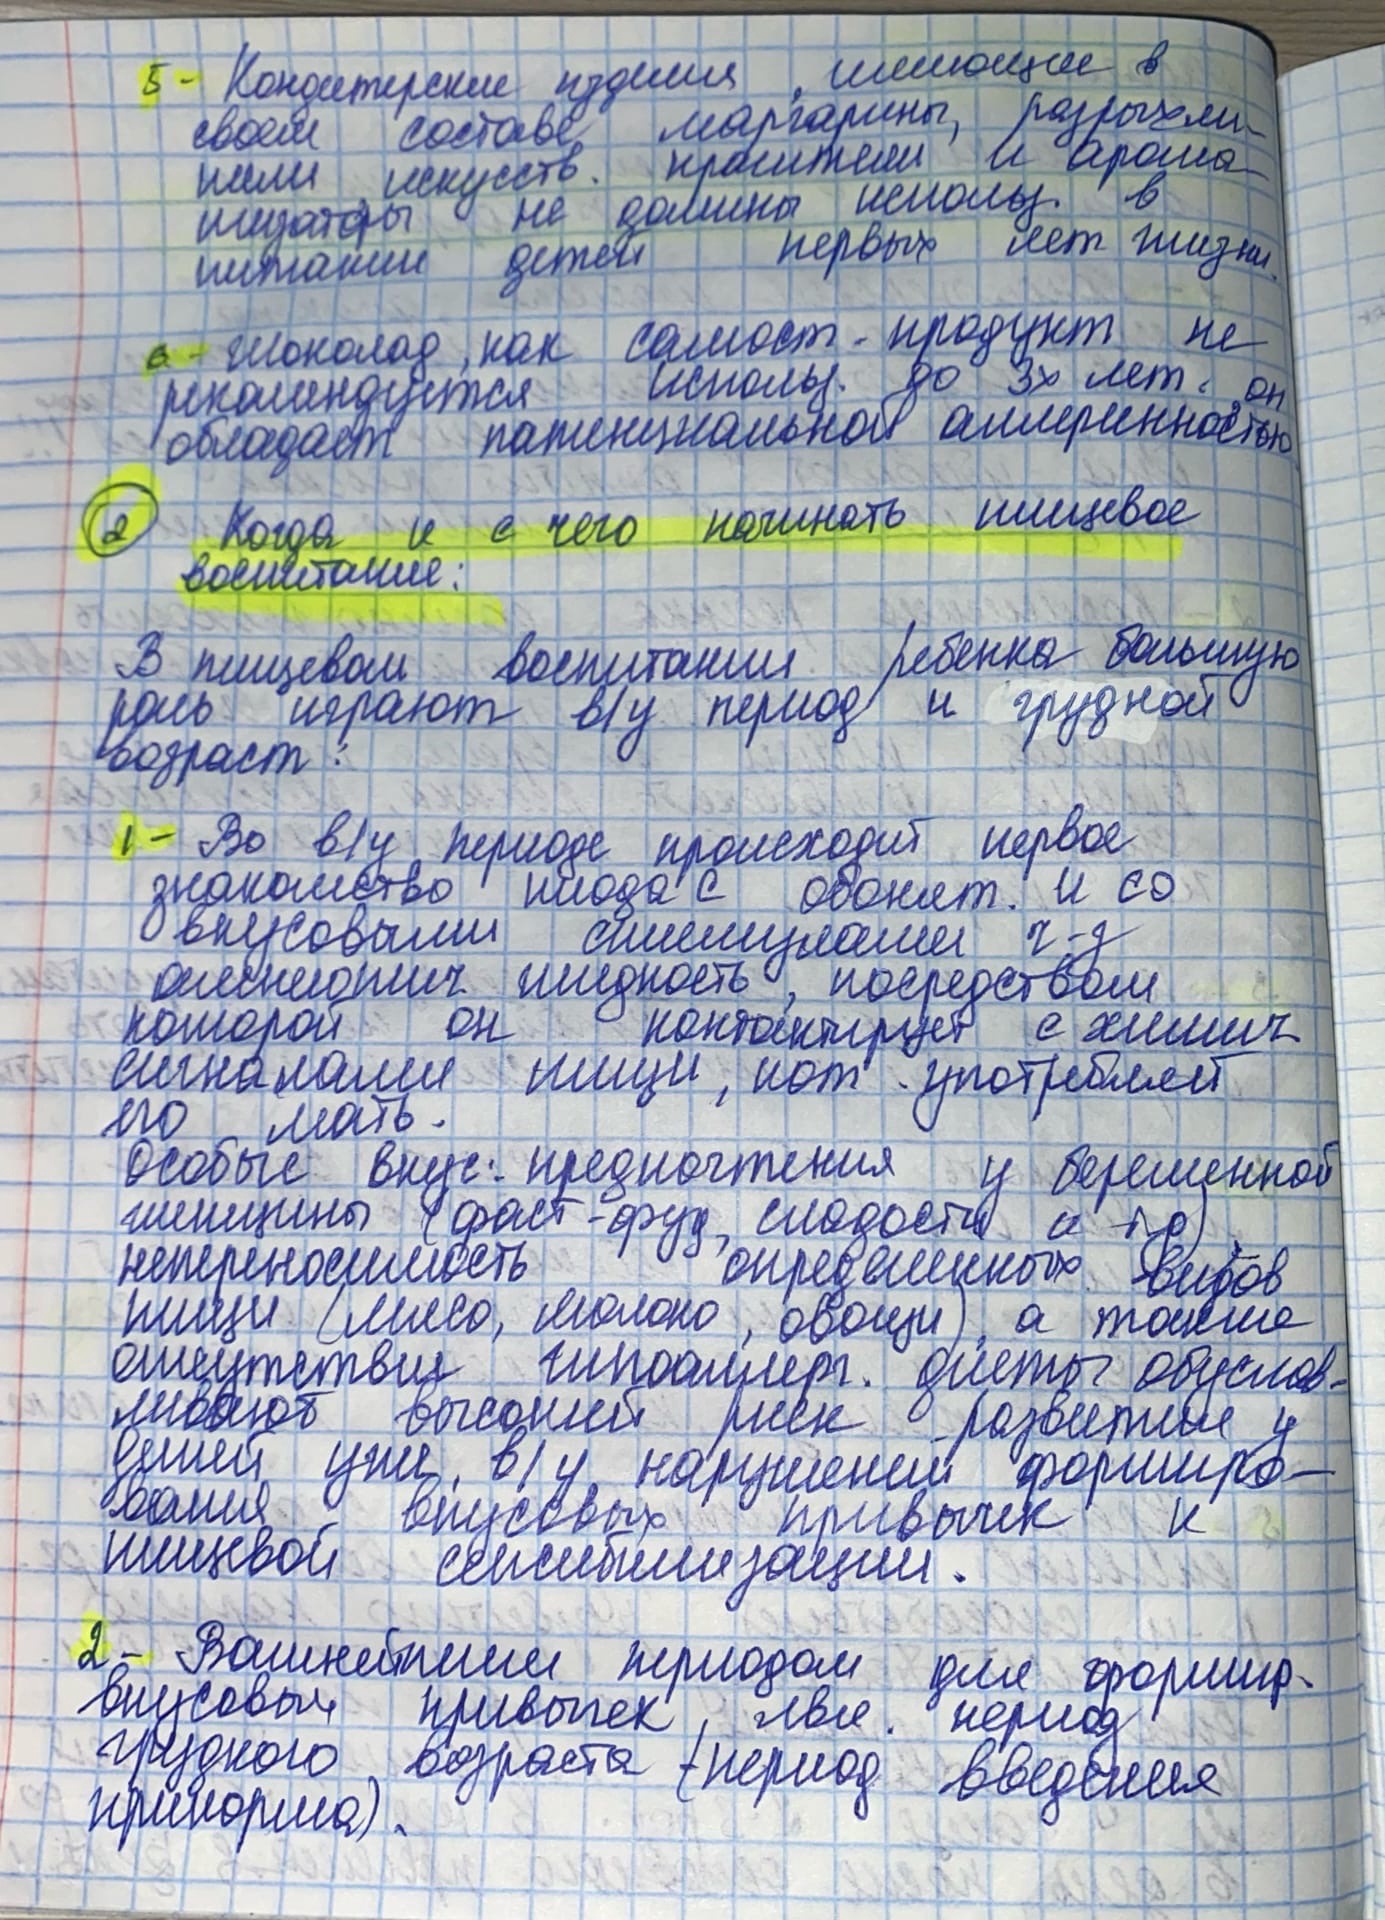 5 - Кондитерские изделия, имеющие в
своем составе маргарины, разрыхли-
тели искусств. красители и арома-
тизаторы не должны использ. в
питании детей первых лет жизни.
6 - Шоколад, как самост. продукт не
рекомендуется использ. до 3х лет. он
обладает патенциальной аллергенностью
2 Когда и с чего начинать пищевое
воспитание:
В пищевом воспитании ребенка большую
роль играют в/у период и грудной
возраст:
1 - Во в/у периоде происходит первое
знакомство плода с обонят. и со
вкусовыми стимулами ч-з
амниотич. жидкость, посредством
которой он контактирует с химич
сигналами пищи, кот. употребляет
его мать.
Особые вкус. предпочтения у беременной
женщины (фаст-фуд, сладости и пр)
непереносимость определенных видов
пищи (мясо, молоко, овощи), а также
отсутствия гипоаллерг. диеты обуслов-
ливают высокий риск развития у
детей уже в/у нарушений формиро-
вания вкусовых привычек и
пищевой сенсибилизации.
2 - Важнейшим периодом для формир.
вкусовых привычек, явл. период
грудного возраста (период введения
прикорма).